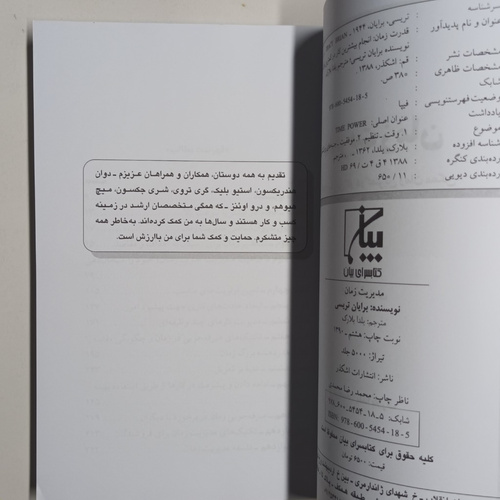 تقدیم به همه دوستان، همکاران و همراهان عزیزم ـ دوان
هندریکسون، استیو بلیک، گری تروی، شری جکسون، میچ
هیوهم، و درو اوئنز ـ که همگی متخصصان ارشد در زمینه
کسب و کار هستند و سال‌ها به من کمک کرده‌اند. به‌خاطر همه
چیز متشکرم. حمایت و کمک شما برای من باارزش است.
سرشناسه : تریسی، برایان، ۱۹۴۴ ـ
عنوان و نام پدیدآور : قدرت زمان:
نویسنده برایان تریسی؛
مشخصات نشر : قم: اشکذر، ۱۳۸۸
مشخصات ظاهری : ۳۸۰ ص.
شابک : 978-600-5454-18-5
وضعیت فهرست‌نویسی : فیپا
یادداشت : عنوان اصلی: TIME POWER
موضوع : ۱. وقت ـ تنظیم ۲. موفقیت
شناسه افزوده : بلارک، یلدا، ۱۳۶۲
رده‌بندی کنگره
رده‌بندی دیویی : ۶۵۰/۱۱
بیان
کتابسرای بیان
مدیریت زمان
نویسنده: برایان تریسی
مترجم: یلدا بلارک
نوبت چاپ: هشتم ـ ۱۳۹۰
تیراژ: ۵۰۰۰ جلد
ناشر: انتشارات اشکذر
ناظر چاپ: محمد رضا محمدی
شابک: ۵ ـ ۱۸ ـ ۵۴۵۴ ـ ۶۰۰ ـ ۹۷۸
ISBN: 978-600-5454-18-5
کلیه حقوق برای کتابسرای بیان محفوظ
قیمت: ۶۵۰۰ تومان
خ شهدای ژاندارمری ـ بین خ